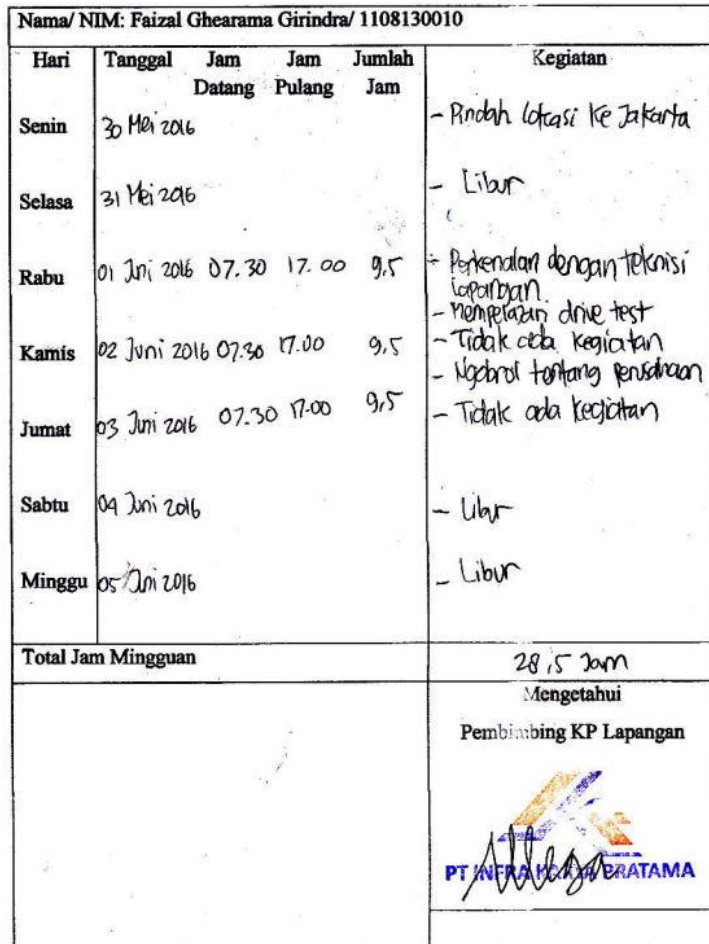 Nama/ NIM: Faizal Ghearama Girindra/ 1108130010
Hari Tanggal Jam Datang Jam Pulang Jumlah Jam Kegiatan
Senin 30 Mei 2016 - Pindah lokasi ke Jakarta
Selasa 31 Mei 2016 - Libur
Rabu 01 Juni 2016 07.30 17.00 9,5 - Perkenalan dengan teknisi
lapangan.
- Mempelajari drive test
Kamis 02 Juni 2016 07.30 17.00 9,5 - Tidak ada kegiatan
- Ngobrol tentang perusahaan
Jumat 03 Juni 2016 07.30 17.00 9,5 - Tidak ada kegiatan
Sabtu 04 Juni 2016 - Libur
Minggu 05 Juni 2016 - Libur
Total Jam Mingguan 28,5 Jam
Mengetahui
Pembimbing KP Lapangan
PT INFRA KARYA PRATAMA